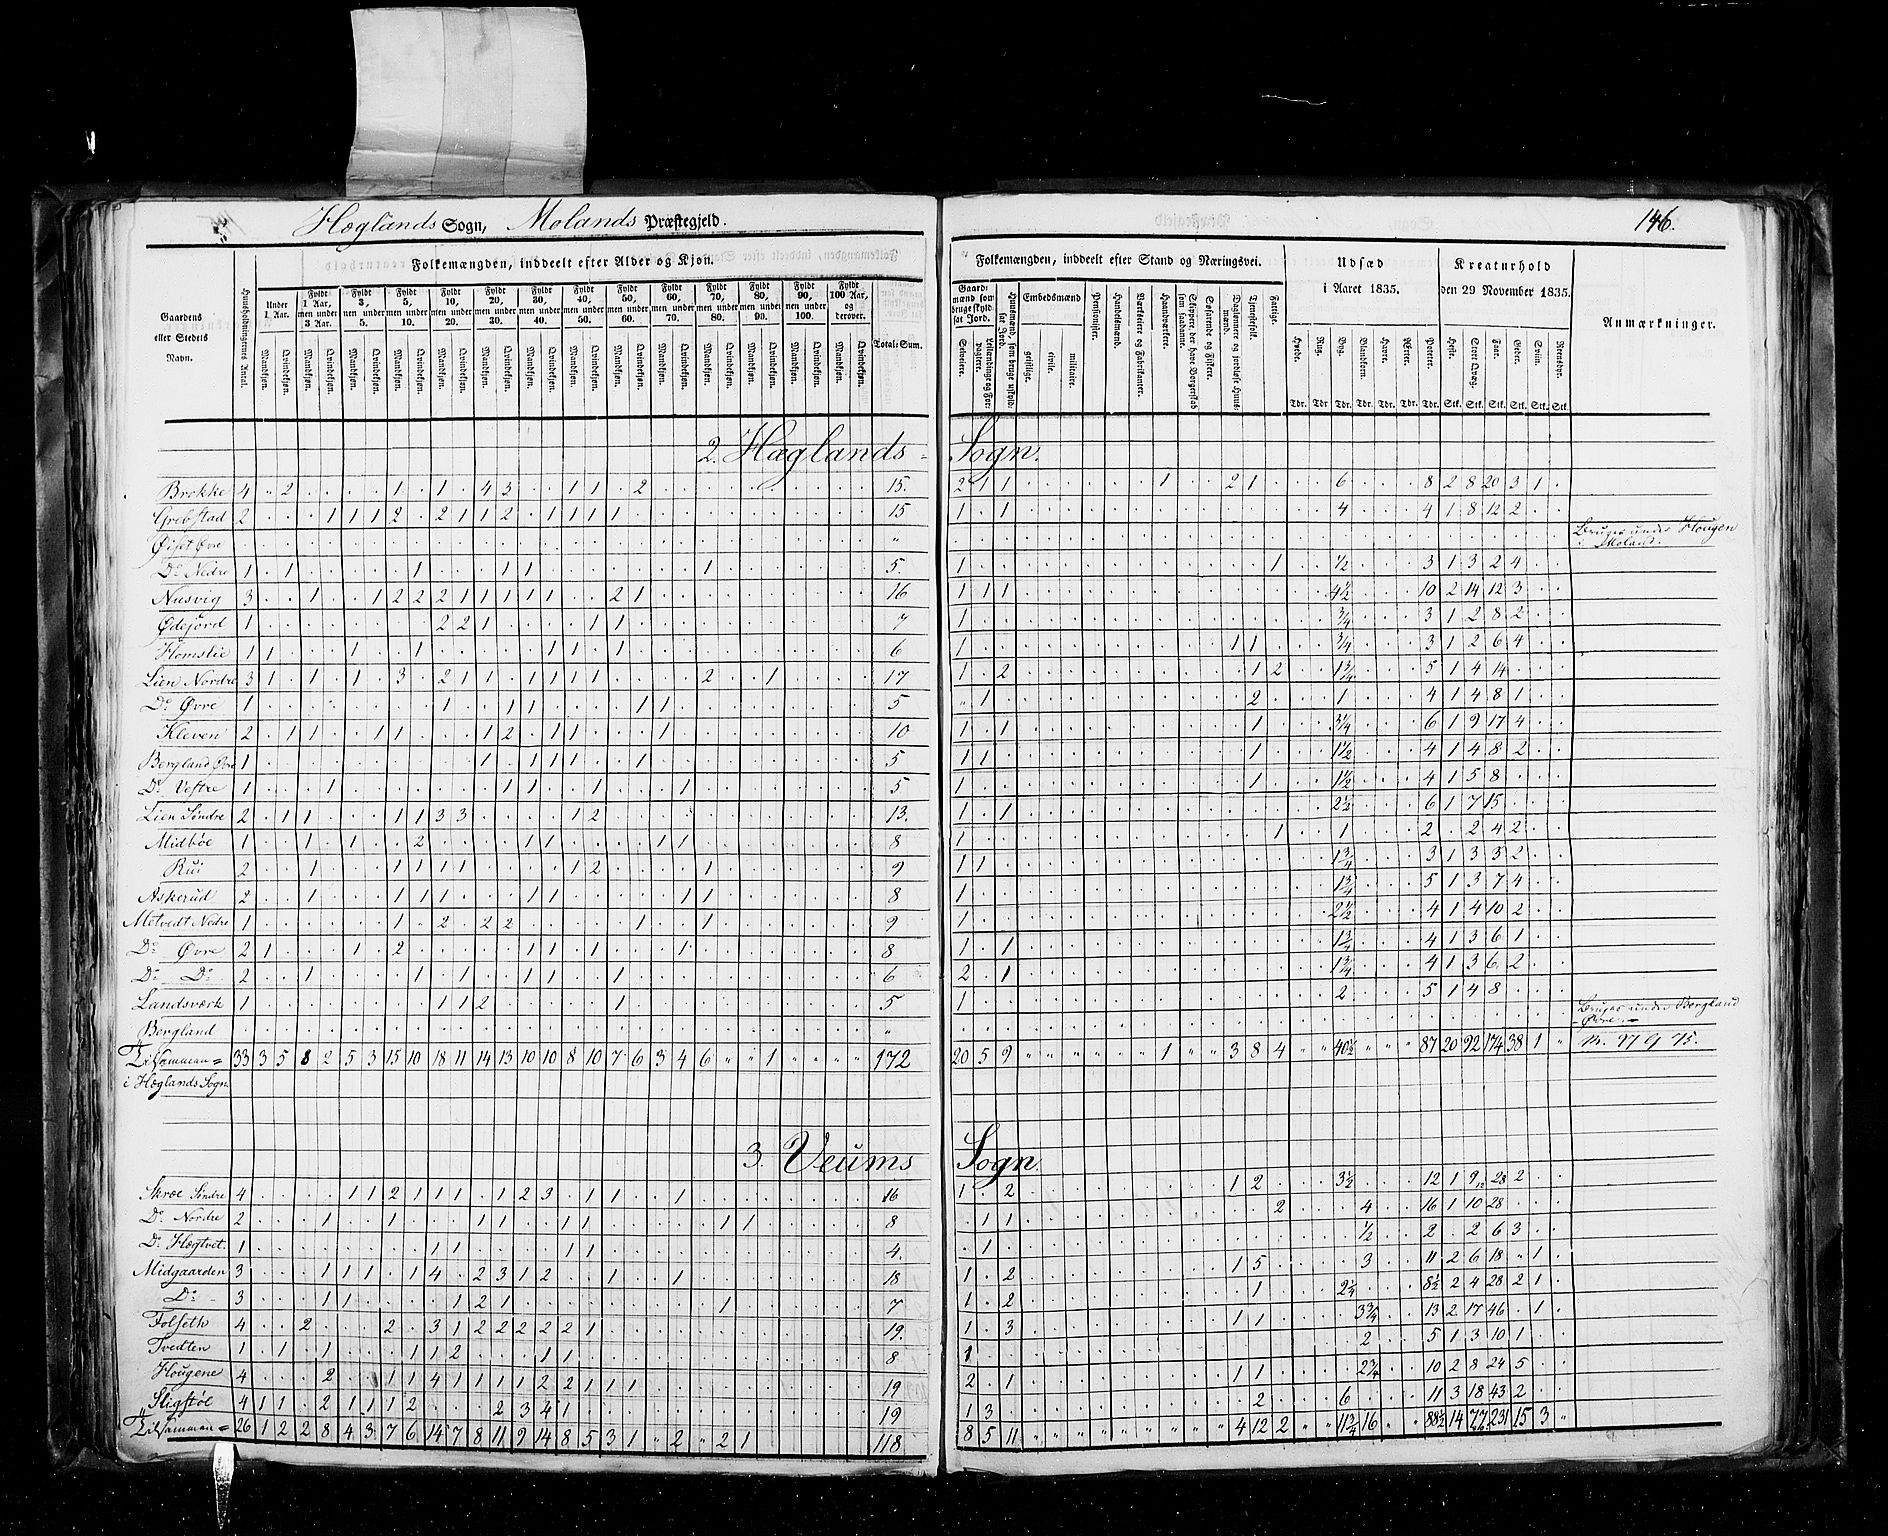 Hæglands Sogn, Molands Præstegjeld.
146.
Folkemængden, inddeelt efter Alder og Kjøn.
Gaardens eller Stedets Navn.
Huusholdningernes Antal.
Under 1 Aar.
Fyldt 1 Aar, men under 3 Aar.
Fyldt 3, men under 5.
Fyldt 5, men under 10.
Fyldt 10, men under 20.
Fyldt 20, men under 30.
Fyldt 30, men under 40.
Fyldt 40, men under 50.
Fyldt 50, men under 60.
Fyldt 60, men under 70.
Fyldt 70, men under 80.
Fyldt 80, men under 90.
Fyldt 90, men under 100.
Fyldt 100 Aar, og derover.
Mandkjøn. Qvindekjøn.
Total-Sum.
Folkemængden, inddeelt efter Stand og Næringsvei.
Gaardmænd som bruge skyldsat Jord.
Selveiere.
Leilændinge og Forpagtere.
Huusmænd, som bruge uskyldsat Jord.
Embedsmænd
geistlige. civile. militaire.
Pensionister.
Handelsmænd.
Værkseiere og Fabrikanteer.
Haandværkere.
Skippere, der have Borgerskab som saadanne.
Søefarende og Fiskere.
Daglønnere og jordløse Huusmænd.
Tjenestefolk.
Fattige.
Udsæd i Aaret 1835.
Hvede. Rug. Byg. Blandkorn. Havre. Ærter. Poteter.
Tdr. Tdr. Tdr. Tdr. Tdr. Tdr. Tdr.
Kreaturhold den 29 November 1835.
Heste. Stort Qvæg. Faar. Geder. Sviin. Rensdyr.
Stk. Stk. Stk. Stk. Stk. Stk.
Anmærkninger.
2. Hæglands Sogn.
Brokke 4 2 1 1 4 3 1 1 2 15. 2 1 1 1 2 1 6 8 2 8 20 3 1
Grebstad 2 1 1 1 2 2 1 1 2 1 1 1 1 15 1 1 4 4 1 8 12 2
Øiset Øvre " Bruges under Hougen i Moland.
Do Nedre 1 1 1 1 1 1 5. 1 1 1/2 3 1 3 2 4
Nusvig 3 1 1 2 2 2 1 1 1 1 1 2 1 16 1 1 1 4 1/2 10 2 14 12 3
Ødejord 1 2 2 1 1 1 7 1 3/4 3 1 2 8 2
Homslie 1 1 1 1 1 1 1 6 1 1 1 3/4 3 1 2 6 4
Lien Nordre 3 1 1 1 3 2 1 1 1 1 1 1 2 1 17 1 2 1 2 1 3/4 5 1 4 14
Do Øvre 1 1 1 1 1 1 5 " 1 2 1 4 1 4 8 1
Kleven 2 1 1 1 1 1 2 1 1 1 10 1 1 1 3 1/4 6 1 9 17 4
Bergland Øvre 1 1 1 1 1 1 5 1 1 1 1 1/2 4 1 4 8 2
Do Vestre 1 1 1 1 1 1 5 1 1 1 1/2 4 1 5 8
Lien Søndre 2 1 1 1 1 3 3 1 2 13. 1 1 2 1/2 6 1 7 15
Midbøe 1 1 1 2 1 1 1 1 8 1 1 1 2 2 4 2
Rui 2 1 1 1 1 1 1 2 1 9 1 1 1 3/4 3 1 3 3 2
Askerud 2 1 1 1 1 1 1 1 1 8 1 1 3/4 5 1 3 7 4
Metvedt Nedre 1 1 2 2 2 1 1 9 1 2 1/2 4 1 4 10 2
Do Øvre 2 1 1 2 1 1 1 1 8 1 1 1 3/4 4 1 3 6 1
Do Do 2 1 1 1 1 1 1 6 2 1 1 3/4 4 1 3 6 2
Landsværk 1 1 1 2 1 5 1 2 5 1 4 8
Bergland " Bruges under Bergland Øvre.
Tilsammen 33 3 5 8 2 5 3 15 10 18 11 14 13 10 10 8 10 7 6 3 4 6 " " 1 " " " " 172 20 5 9 " " " " " " 1 " " 3 8 4 " " 40 1/2 " " " 87 20 92 174 38 1 "
i Hæglands Sogn.
3. Veums Sogn.
Skræe Søndre 4 1 1 2 1 1 1 1 2 3 1 1 1 16 1 2 1 2 3 1/2 12 1 9 28 2
Do Nordre 2 1 1 1 1 1 1 1 1 8 1 1 2 4 16 1 10 28
Do Hægtvet. 1 1 1 1 1 4. 1 1/2 2 2 6 3
Midgaarden 3 1 1 1 1 4 2 3 1 2 1 1 18 1 2 1 5 3 11 2 6 18 " 1
Do 3 1 1 1 2 1 1 7 1 2 1 2 1/4 8 1/2 2 4 28 2 1
Folseth 4 2 2 3 1 2 2 2 2 2 1 19. 1 3 1 1 3 3/4 13 2 17 46 1
Tvedten 1 1 1 1 1 2 1 1 8 1 2 5 1 3 10 1
Hougene 4 2 1 1 4 1 1 1 1 2 2 1 1 1 19 2 1 1 1 2 3/4 10 2 8 24 5
Sligstøl 4 1 1 2 1 1 1 2 2 3 4 1 19 1 3 2 6 11 3 18 43 2
Tilsammen 26 1 2 2 8 4 3 7 6 14 7 8 11 9 14 8 5 3 1 " 2 " 2 1 118 8 5 11 " " " " " " " " " 4 12 2 " " 11 3/4 16 " " 88 1/2 14 77 231 15 3 "